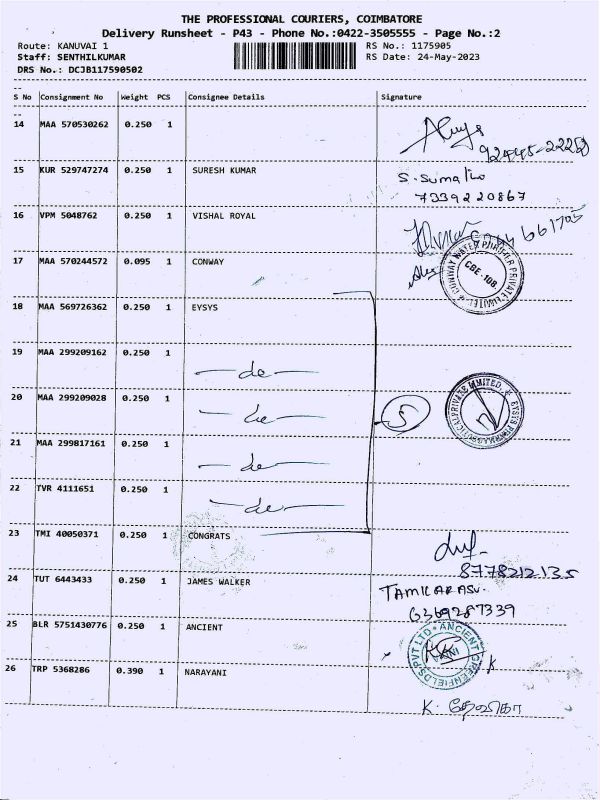 THE PROFESSIONAL COURIERS, COIMBATORE
Delivery Runsheet - P43 - Phone No.:0422-3505555 - Page No.:2
Route: KANUVAI 1 RS No.: 1175905
Staff: SENTHILKUMAR RS Date: 24-May-2023
DRS No.: DCJB117590502
S No Consignment No Weight PCS Consignee Details Signature
14 MAA 570530262 0.250 1
15 KUR 529747274 0.250 1 SURESH KUMAR
7339220867
16 VPM 5048762 0.250 1 VISHAL ROYAL
17 MAA 570244572 0.095 1 CONWAY
CBE-108.
18 MAA 569726362 0.250 1 EYSYS
19 MAA 299209162 0.250 1
-do-
20 MAA 299209028 0.250 1
-do- 5
21 MAA 299817161 0.250 1
-do-
22 TVR 4111651 0.250 1
-do-
23 TMI 40050371 0.250 1 CONGRATS
8778212135
24 TUT 6443433 0.250 1 JAMES WALKER TAMILARASU.
6369287339
25 BLR 5751430776 0.250 1 ANCIENT
ANCIENT GREENFIELDS PVT LTD
26 TRP 5368286 0.390 1 NARAYANI
K. தேவிகா